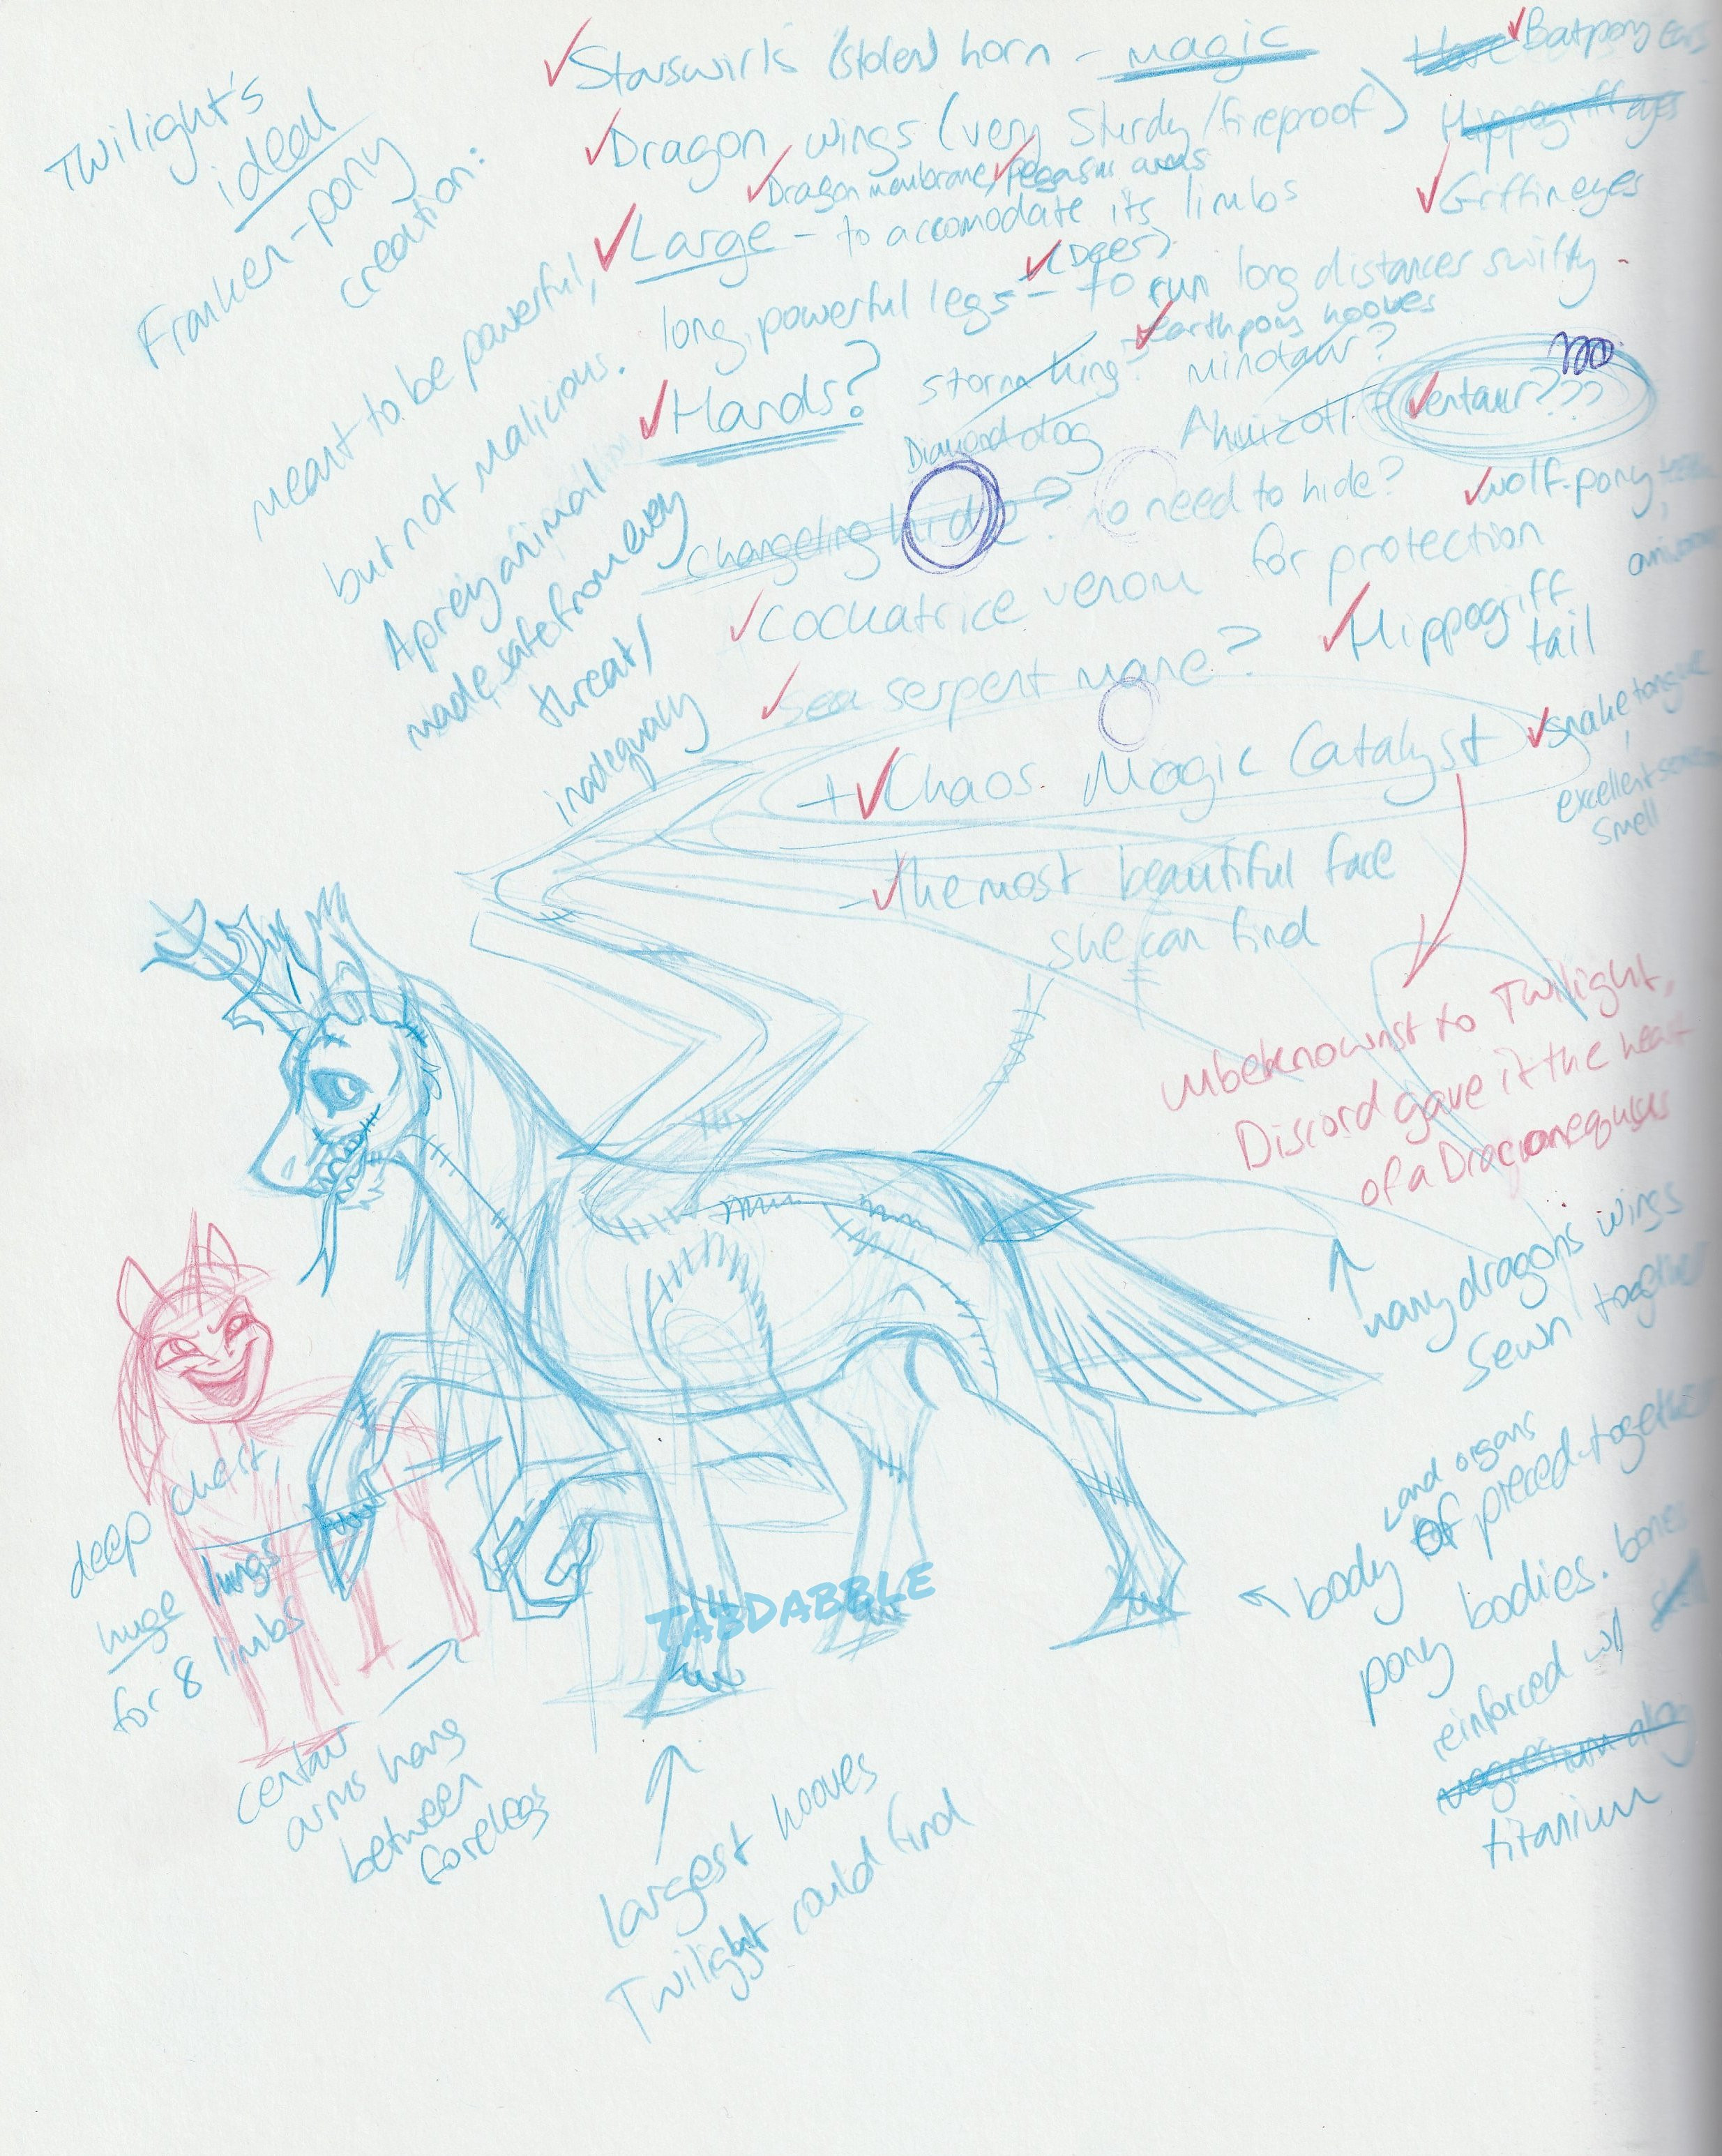 Twilight's
ideal
Franken-pony
creation:
meant to be powerful,
but not malicious.
A prey animal
made safe from every
threat/
inadequacy
Starswirls (stolen) horn - magic
Dragon wings (very sturdy/fireproof)
Dragon membrane/pegasus
Large - to accomodate its limbs
(Deer)
long, powerful legs - to run long distances swiftly
earthpony hooves
Hands? Storm King? Minotaur?
Diamond dog Ahuizotl? Centaur???
no
changeling hide? no need to hide?
cockatrice venom for protection
sea serpent mane?
+ Chaos Magic Catalyst
- the most beautiful face
she can find
Batpony ears
Hippogriff eyes
Griffin eyes
wolf-pony
Hippogriff
tail
snake tongue
excellent
smell
unbeknownst to Twilight,
Discord gave it the heart
of a Draconequus
many dragons wings
sewn together
and organs
body of pieced-together
pony bodies. bones
reinforced w/
titanium
deep chest,
huge lungs
for 8 limbs
centaur
arms hang
between
forelegs
largest hooves
Twilight could find
TABDABBLE